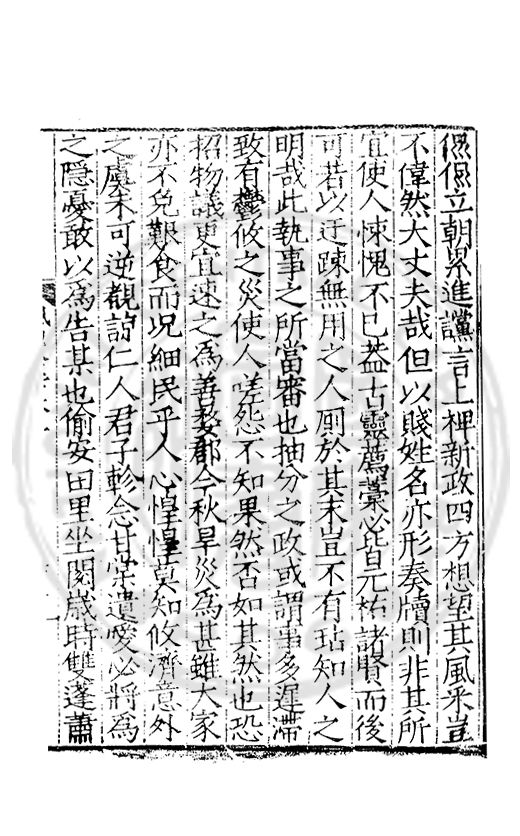 侃侃立朝累進讜言上裨新政四方想望其風采豈
不偉然大丈夫哉但以賤姓名亦形奏牘則非其所
宜使人悚愧不已葢古靈薦藁必皆元祐諸賢而後
可若以迂踈無用之人厠於其末豈不有玷知人之
明哉此執事之所當審也抽分之政或謂事多遲滯
致有鬱攸之災使人嗟怨不知果然否如其然也恐
招物議更宜速之為善婺郡今秋旱災為甚雖大家
亦不免艱食而况細民乎人心惶惶莫知攸濟意外
之虞未可逆覩諒仁人君子軫念甘棠遺愛必將為
之隱憂敢以爲告某也偷安田里坐閱歲時雙蓬蕭